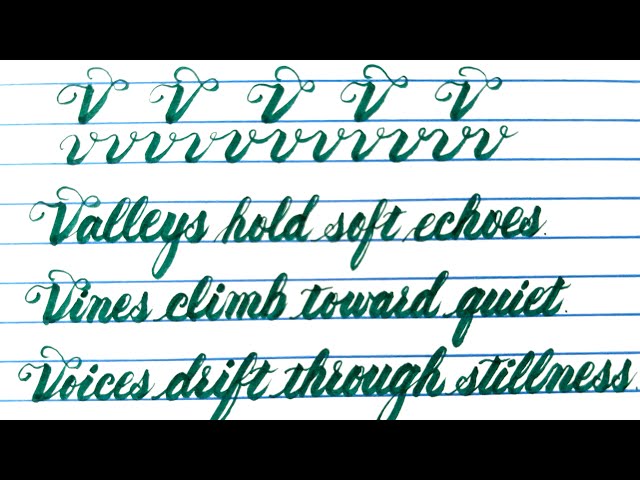 V V V V V
vvvvvvvvvvv
Valleys hold soft echoes.
Vines climb toward quiet.
Voices drift through stillness.